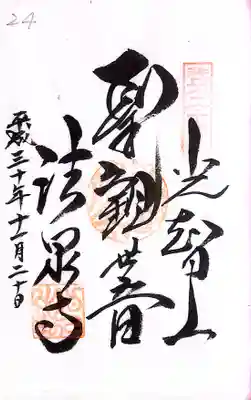 24
光智山
聖観世音
法泉寺
平成三十年十一月二十日